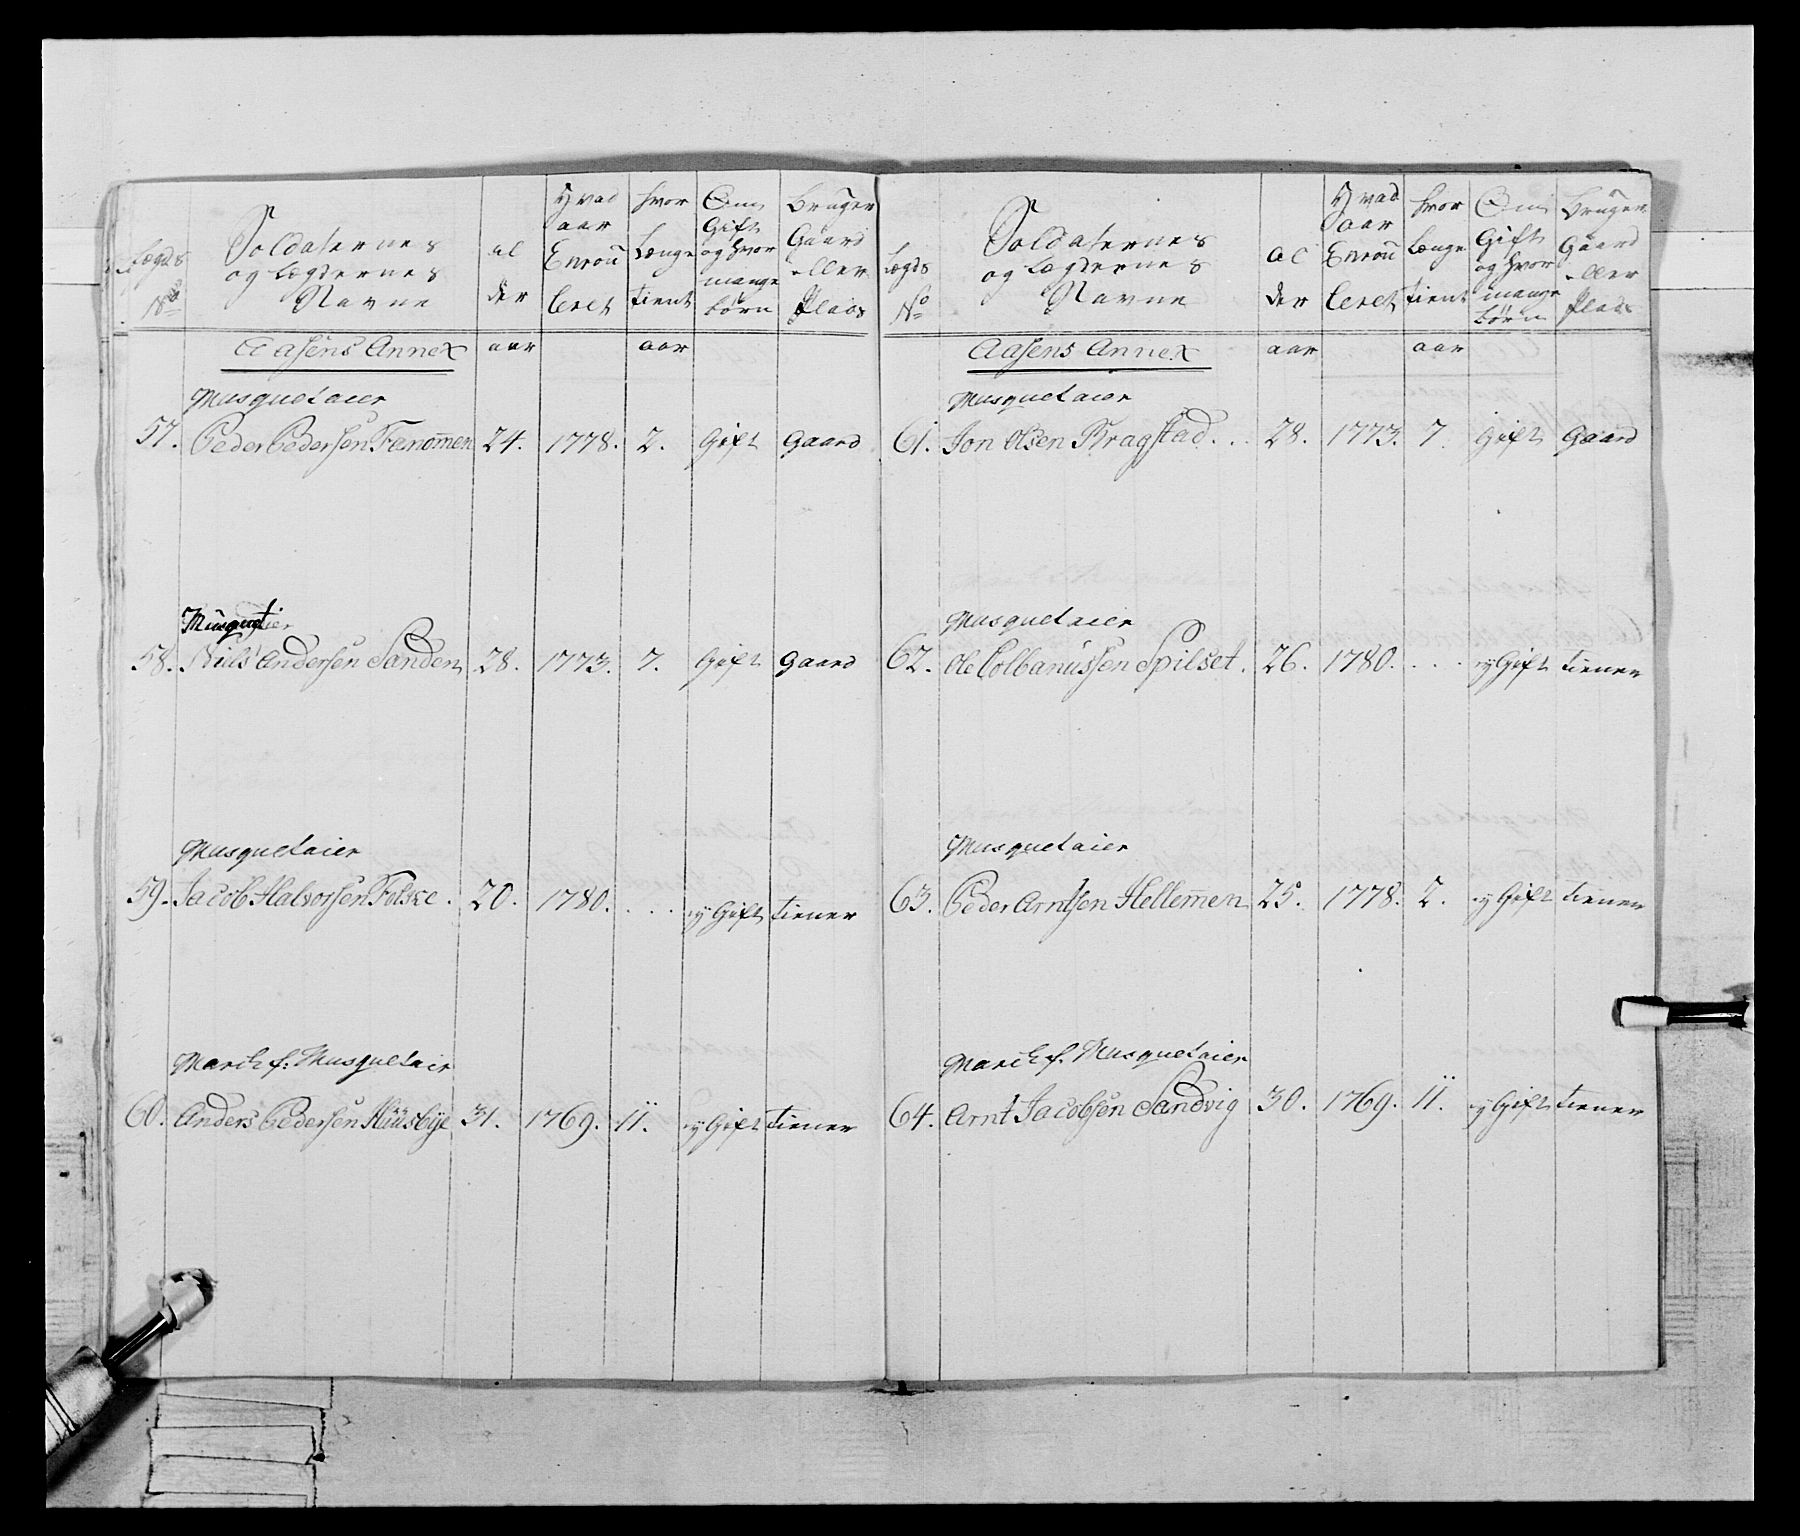 Lægds No
Soldaternes og Lægdernes Navne
al der
Hvad aar Enroulleret
hvor Længe tient
Om Gift og hvor mange børn
bruger Gaard eller Plads
Aasens Annex aar aar
Musquetaier
57. Peder Pedersen Fenommen 24. 1778. 2. Gift Gaard
Musquetier
58. Niels Andersen Sanden 28. 1773. 7. Gift Gaard
Musquetaier
59. Jacob Halvorsen Folske. 20. 1780. ... ey Gift tiener
March f: Musquetair
60. Anders Pedersen Huusbye 31. 1769. 11. ey Gift tiener
Lægds No
Soldaternes og Lægdernes Navne
al der
Hvad aar Enroulleret
hvor Længe tient
Om Gift og hvor mange børn
bruger Gaard eller Plads
Aasens Annex aar aar
Musquetaier
61. Jon Olsen Kragstad... 28. 1773. 7. Gift Gaard
Musquetaier
62. Ole Colbanussen Spilset. 26. 1780. ... ey Gift tiener
Musquetaier
63. Peder Arntsen Hellemen 25. 1778. 2. ey Gift tiener
March f. Musquetaier
64. Arnt Jacobsen Sandvig 30. 1769. 11. ey Gift tiener